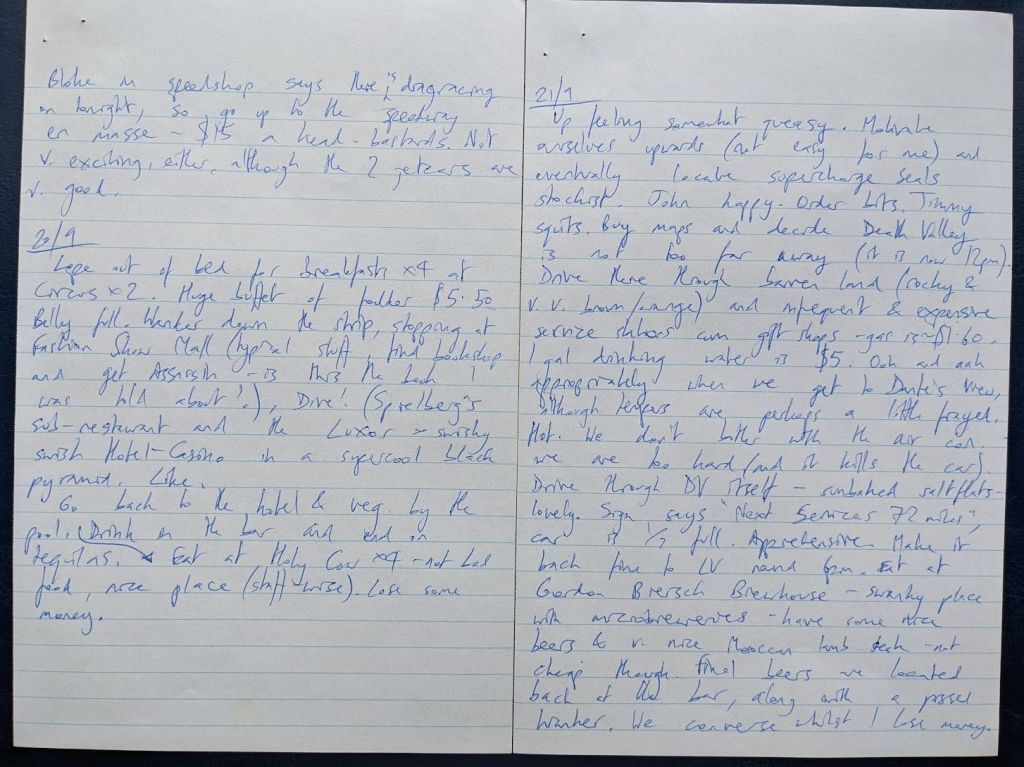 Bloke in speedshop says there is dragracing
on tonight, so go up to the speedway
en masse - $15 a head - bastards. Not
v. exciting, either, although the 2 jetcars are
v. good.
20/9
Lepe out of bed for breakfasts x4 at
Circus x2. Huge buffet of fodder $5.50
Belly full. Wander down the strip, stopping at
Fashion Show Mall (typical stuff, find bookshop
and get Assassin - is this the book I
was told about?), Dive! (Spielberg's
sub-restaurant and the Luxor - swishy
swish Hotel-Casino in a supercool black
pyramid. Like.
Go back to the hotel & veg. by the
pool. Drink in the bar and end in
tequilas. Eat at Holy Cow x4 - not bad
food, nice place (staff-wise). Lose some
money.
21/9
Up feeling somewhat queasy. Motivate
ourselves upwards (not easy for me) and
eventually locate supercharge seals
stockist. John happy. Order bits. Timmy
squits. Buy maps and decide Death Valley
is not too far away (it is now 12pm).
Drive there through barren land (rocky &
v. v. brown/orange) and infrequent & expensive
service stations cum gift shops - gas is ~$1.60,
1 gal drinking water is $5. Ooh and aah
appropriately when we get to Dante's View,
although tempers are perhaps a little frayed.
Hot. We don't bother with the air con.
we are too hard (and it kills the car).
Drive through DV itself - sunbaked saltflats -
lovely. Sign says "Next Services 72 miles",
car is 1/2 full. Apprehensive. Make it
back fine to LV round 6pm. Eat at
Gordon Biersch Brewhouse - swanky place
with microbreweries - have some nice
beers & v. nice Moroccan lamb - not
cheap though. Final beers are located
back at the bar, along with a pissed
wanker. We converse whilst I lose money.